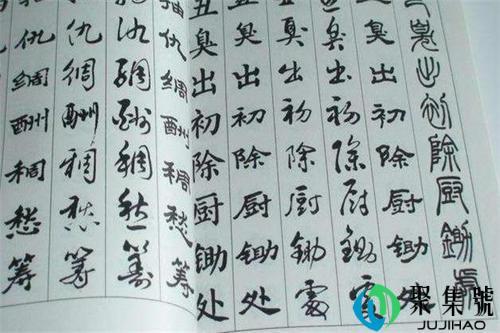 仇绸酬稠愁筹
仇绸酬稠愁筹
仇绸酬稠愁筹
抽仇绸酬稠愁筹
丑臭出初除厨锄处
丑臭出初除厨锄处
臭出初除厨锄處
臭出初除厨锄處
臭出初除厨锄处
臭出初除厨鋤處
聚集號
JUJIHAO